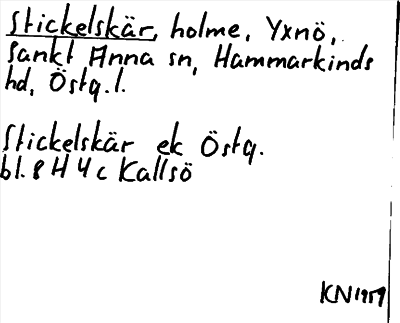 Stickelskär, holme, Yxnö,
Sankt Anna sn, Hammarkinds
hd, Östg.l.
Stickelskär ek Östg.
bl. 8 H 4 c Kallsö
KN 1959